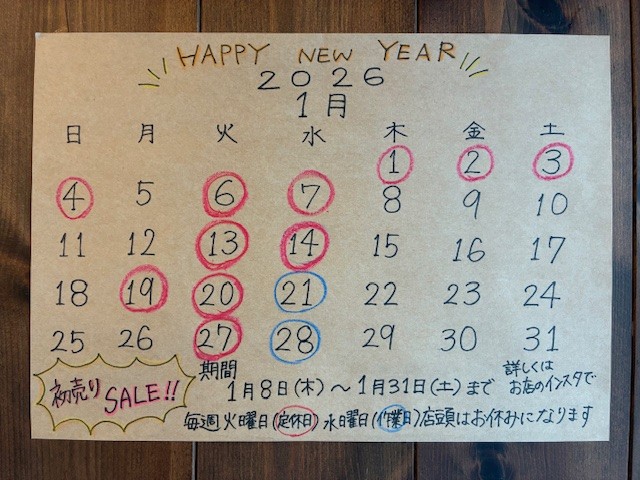 HAPPY NEW YEAR
2026
1月
日 月 火 水 木 金 土
1 2 3
4 5 6 7 8 9 10
11 12 13 14 15 16 17
18 19 20 21 22 23 24
25 26 27 28 29 30 31
初売り SALE!!
期間
1月8日(木)～1月31日(土)まで
詳しくは
お店のインスタで
毎週火曜日(定休日)水曜日(作業日)店頭はお休みになります